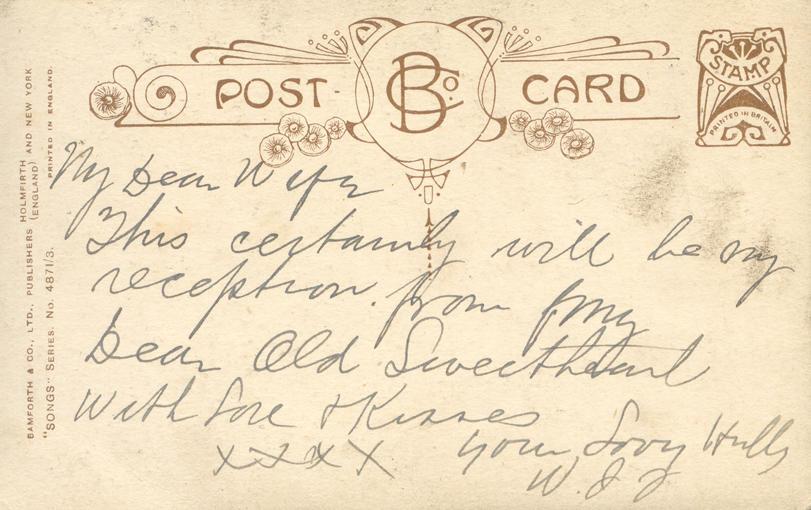 POST CARD
B Co.
STAMP
PRINTED IN BRITAIN
BAMFORTH & CO., LTD., PUBLISHERS HOLMFIRTH (ENGLAND) AND NEW YORK
"SONGS" SERIES. No. 4871/3.
PRINTED IN ENGLAND.
My Dear Wife
This certainly will be my
reception from my
Dear Old Sweetheart
With Love & Kisses
xxxx your
W.